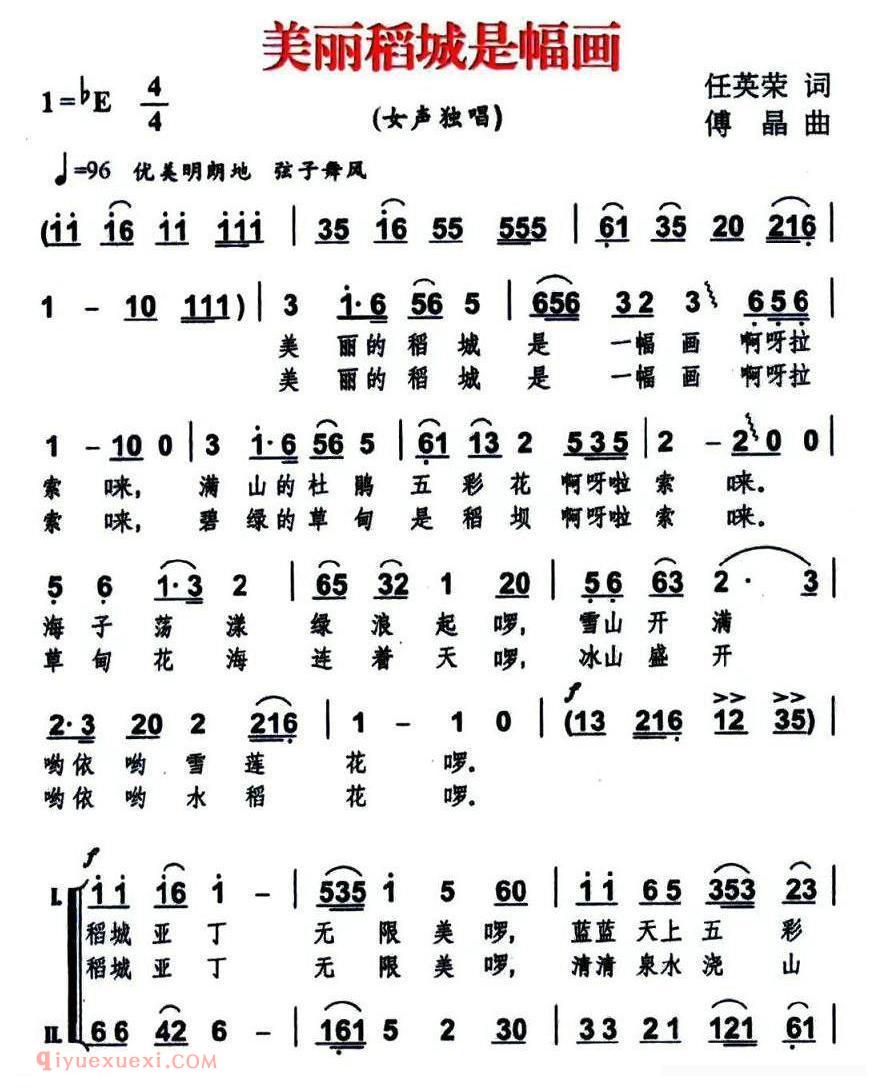 美丽稻城是幅画
1=♭E 4/4
(女声独唱)
任英荣 词
傅 晶 曲
♩=96 优美明朗地 弦子舞风
(11 16 11 111 | 35 16 55 555 | 61 35 20 216 |
1 – 10 111) | 3 1·6 56 5 | 656 32 3 656 |
美 丽的 稻 城 是 一幅 画 啊呀拉
美 丽的 稻 城 是 一幅 画 啊呀拉
1 – 10 0 | 3 1·6 56 5 | 61 13 2 535 | 2 – 20 0 |
索 唻, 满 山的 杜 鹃 五 彩 花 啊呀啦 索 唻。
索 唻, 碧 绿的 草 甸 是 稻 坝 啊呀啦 索 唻。
5 6 1·3 2 | 65 32 1 20 | 56 63 2· 3 |
海 子 荡 漾 绿 浪 起 啰, 雪山 开 满
草 甸 花 海 连 着 天 啰, 冰山 盛 开
2·3 20 2 216 | 1 – 1 0 | f (13 216 12 35) |
哟依 哟 雪 莲 花 啰。
哟依 哟 水 稻 花 啰。
f
I. 11 16 1 – | 535 1 5 60 | 11 65 353 23 |
稻城 亚 丁 无 限 美 啰, 蓝蓝 天上 五 彩
稻城 亚 丁 无 限 美 啰, 清清 泉水 浇 山
II. 66 42 6 – | 161 5 2 30 | 33 21 121 61 |
qiyuexuexi.com